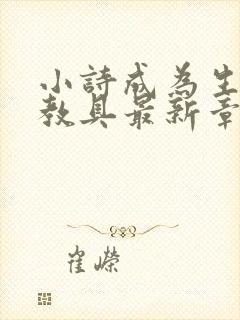 小詩成為生
教具最新章
崔嶸